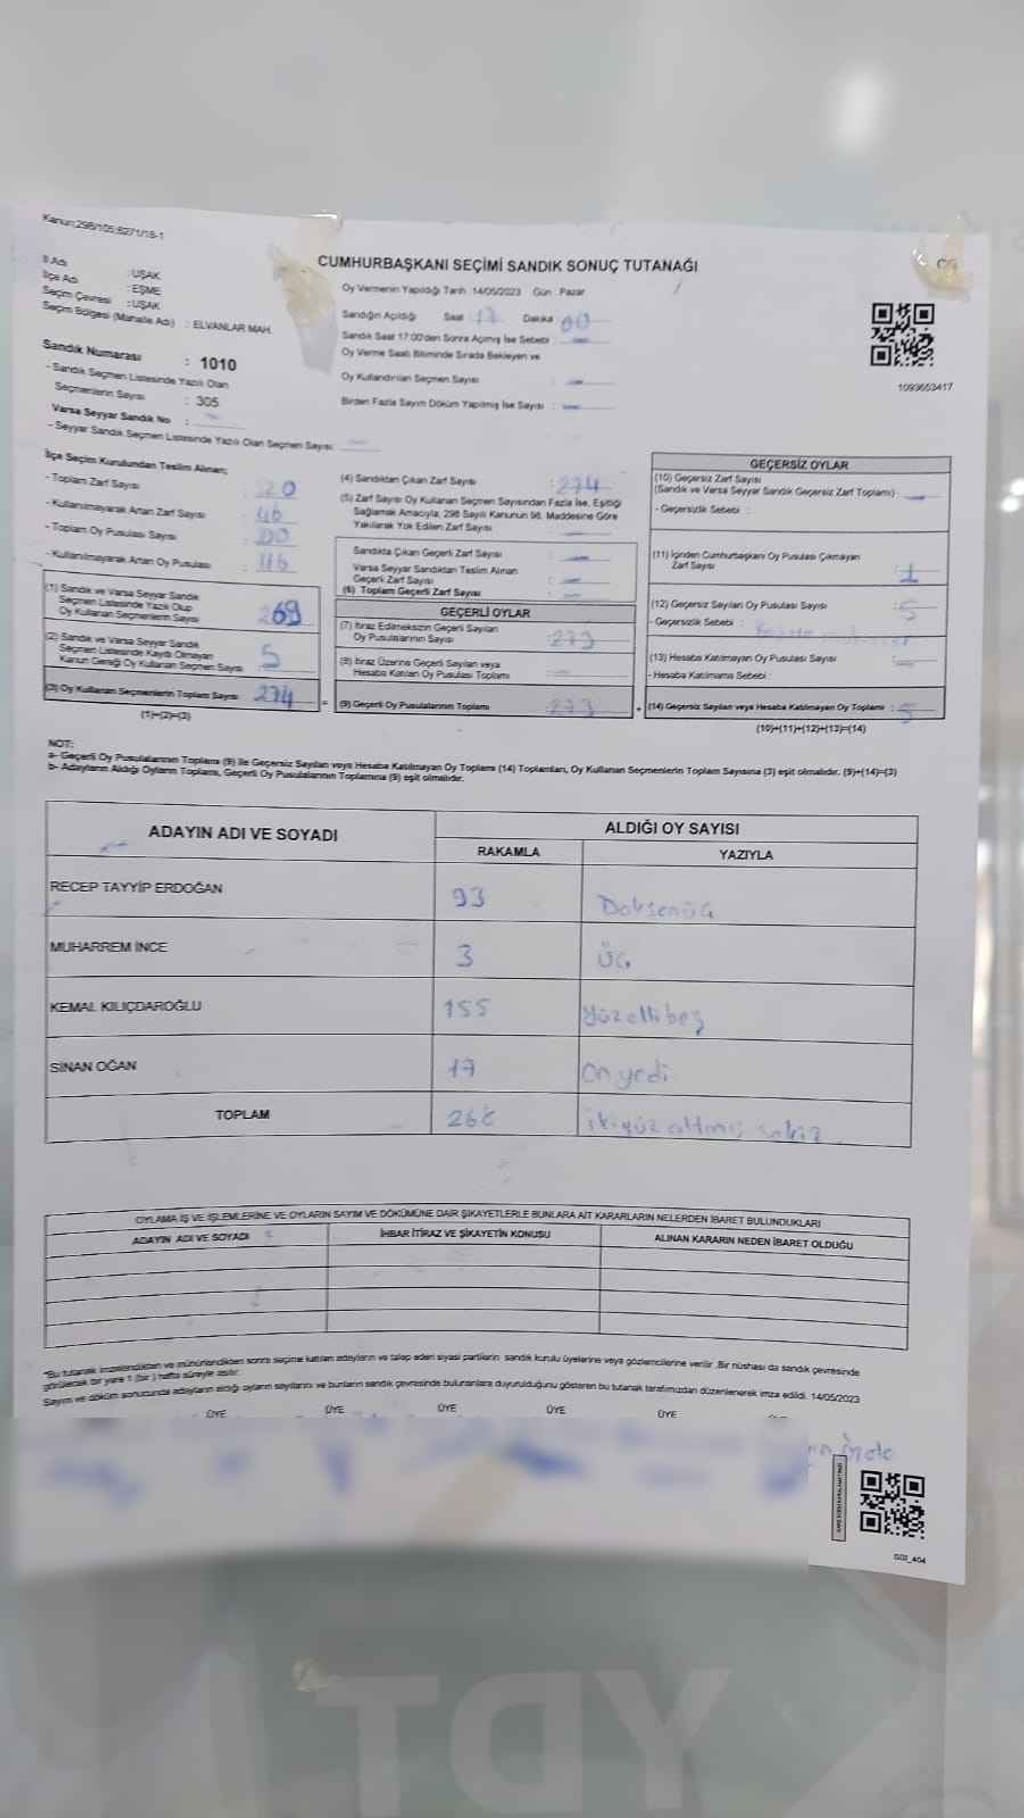 Kanun:298/105;6271/18-1
CUMHURBAŞKANI SEÇİMİ SANDIK SONUÇ TUTANAĞI
İl Adı : UŞAK
İlçe Adı : EŞME
Seçim Çevresi : UŞAK
Seçim Bölgesi (Mahalle Adı) : ELVANLAR MAH.
Sandık Numarası : 1010
- Sandık Seçmen Listesinde Yazılı Olan
Seçmenlerin Sayısı : 305
Varsa Seyyar Sandık No :
- Seyyar Sandık Seçmen Listesinde Yazılı Olan Seçmen Sayısı:
Oy Vermenin Yapıldığı Tarih :14/05/2023 Gün : Pazar
Sandığın Açıldığı Saat 17 Dakika 00
Sandık Saat 17:00'den Sonra Açmış İse Sebebi :
Oy Verme Saati Bitiminde Sırada Bekleyen ve
Oy Kullandırılan Seçmen Sayısı :
Birden Fazla Sayım Döküm Yapılmış İse Sayısı :
1093653417
İlçe Seçim Kurulundan Teslim Alınan;
- Toplam Zarf Sayısı :
- Kullanılmayarak Artan Zarf Sayısı :
- Toplam Oy Pusulası Sayısı :
- Kullanılmayarak Artan Oy Pusulası :
(1) Sandık ve Varsa Seyyar Sandık
Seçmen Listesinde Yazılı Olup
Oy Kullanan Seçmenlerin Sayısı 269
(2) Sandık ve Varsa Seyyar Sandık
Seçmen Listesinde Kayıtlı Olmayan
Kanun Gereği Oy Kullanan Seçmen Sayısı 5
(3) Oy Kullanan Seçmenlerin Toplam Sayısı 274
(1)+(2)=(3)
(4) Sandıktan Çıkan Zarf Sayısı : 274
(5) Zarf Sayısı Oy Kullanan Seçmen Sayısından Fazla İse, Eşitliği
Sağlamak Amacıyla, 298 Sayılı Kanunun 98. Maddesine Göre
Yakılarak Yok Edilen Zarf Sayısı
Sandıkta Çıkan Geçerli Zarf Sayısı :
Varsa Seyyar Sandıktan Teslim Alınan
Geçerli Zarf Sayısı :
(6) Toplam Geçerli Zarf Sayısı :
GEÇERLİ OYLAR
(7) İtiraz Edilmeksizin Geçerli Sayılan
Oy Pusulalarının Sayısı : 273
(8) İtiraz Üzerine Geçerli Sayılan veya
Hesaba Katılan Oy Pusulası Toplamı :
(9) Geçerli Oy Pusulalarının Toplamı : 273
GEÇERSİZ OYLAR
(10) Geçersiz Zarf Sayısı
(Sandık ve Varsa Seyyar Sandık Geçersiz Zarf Toplamı) :
- Geçersizlik Sebebi :
(11) İçinden Cumhurbaşkanı Oy Pusulası Çıkmayan
Zarf Sayısı : 1
(12) Geçersiz Sayılan Oy Pusulası Sayısı : 5
- Geçersizlik Sebebi :
(13) Hesaba Katılmayan Oy Pusulası Sayısı :
- Hesaba Katılmama Sebebi :
(14) Geçersiz Sayılan veya Hesaba Katılmayan Oy Toplamı : 5
(10)+(11)+(12)+(13)=(14)
NOT:
a- Geçerli Oy Pusulalarının Toplamı (9) ile Geçersiz Sayılan veya Hesaba Katılmayan Oy Toplamı (14) Toplamları, Oy Kullanan Seçmenlerin Toplam Sayısına (3) eşit olmalıdır. (9)+(14)=(3)
b- Adayların Aldığı Oyların Toplamı, Geçerli Oy Pusulalarının Toplamına (9) eşit olmalıdır.
ADAYIN ADI VE SOYADI ALDIĞI OY SAYISI
RAKAMLA YAZIYLA
RECEP TAYYİP ERDOĞAN 93 Doksenüç
MUHARREM İNCE 3 Üç
KEMAL KILIÇDAROĞLU 155 Yüzellibeş
SİNAN OĞAN 17 On yedi
TOPLAM 268 ikiyüz altmış sekiz
OYLAMA İŞ VE İŞLEMLERİNE VE OYLARIN SAYIM VE DÖKÜMÜNE DAİR ŞİKAYETLERLE BUNLARA AİT KARARLARIN NELERDEN İBARET BULUNDUKLARI
ADAYIN ADI VE SOYADI İHBAR İTİRAZ VE ŞİKAYETİN KONUSU ALINAN KARARIN NEDEN İBARET OLDUĞU
"Bu tutanak imzalandıktan ve mühürlendikten sonra seçime katılan adayların ve talep eden siyasi partilerin sandık kurulu üyelerine veya gözlemcilerine verilir. Bir nüshası da sandık çevresinde
görülecek bir yere 1 (bir) hafta süreyle asılır.
Sayım ve döküm sonucunda adayların aldığı oyların sayılarını ve bunların sandık çevresinde bulunanlara duyurulduğunu gösteren bu tutanak tarafımızdan düzenlenerek imza edildi. 14/05/2023
ÜYE ÜYE ÜYE ÜYE ÜYE